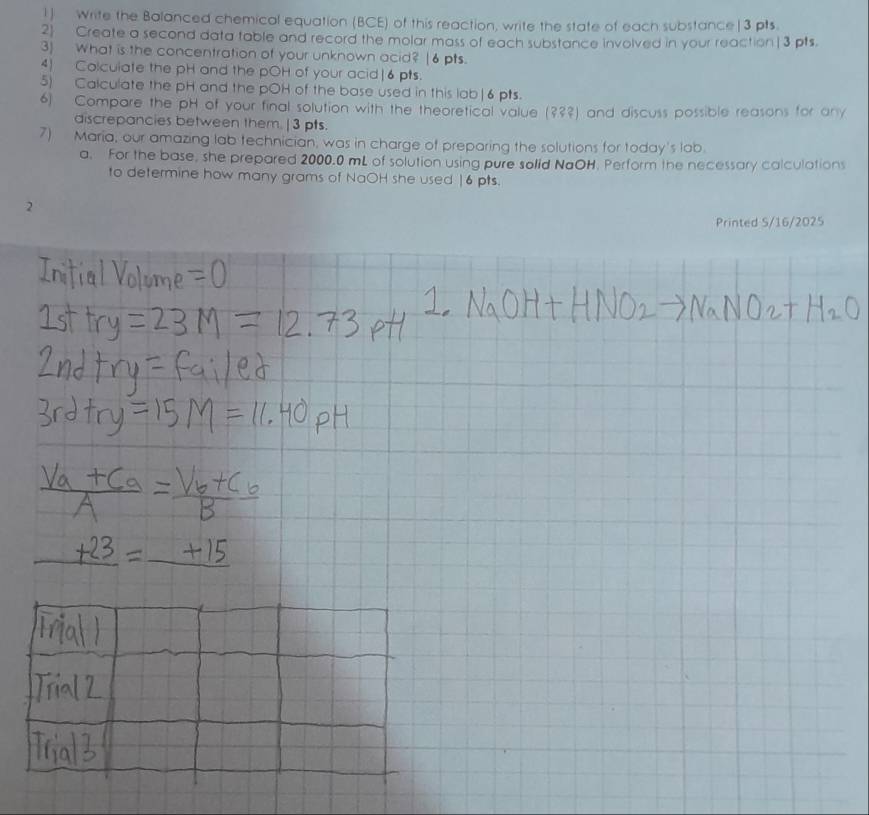 1) Write the Balanced chemical equation (BCE) of this reaction, write the state of each substance | 3 pts.
2) Create a second data table and record the molar mass of each substance involved in your reaction | 3 pts.
3) What is the concentration of your unknown acid? | 6 pts.
4) Calculate the pH and the pOH of your acid | 6 pts.
5) Calculate the pH and the pOH of the base used in this lab | 6 pts.
6) Compare the pH of your final solution with the theoretical value (???) and discuss possible reasons for any
discrepancies between them. | 3 pts.
7) Maria, our amazing lab technician, was in charge of preparing the solutions for today's lab.
a. For the base, she prepared 2000.0 mL of solution using pure solid NaOH. Perform the necessary calculations
to determine how many grams of NaOH she used | 6 pts.
2
Printed 5/16/2025
Initial Volume = 0
1st try = 23 M = 12.73 pH
1. NaOH + HNO2 → NaNO2 + H2O
2nd try = failed
3rd try = 15 M = 11.40 pH
Va + Ca = Vb + Cb
A B
+23 = +15
Trial 1
Trial 2
Trial 3